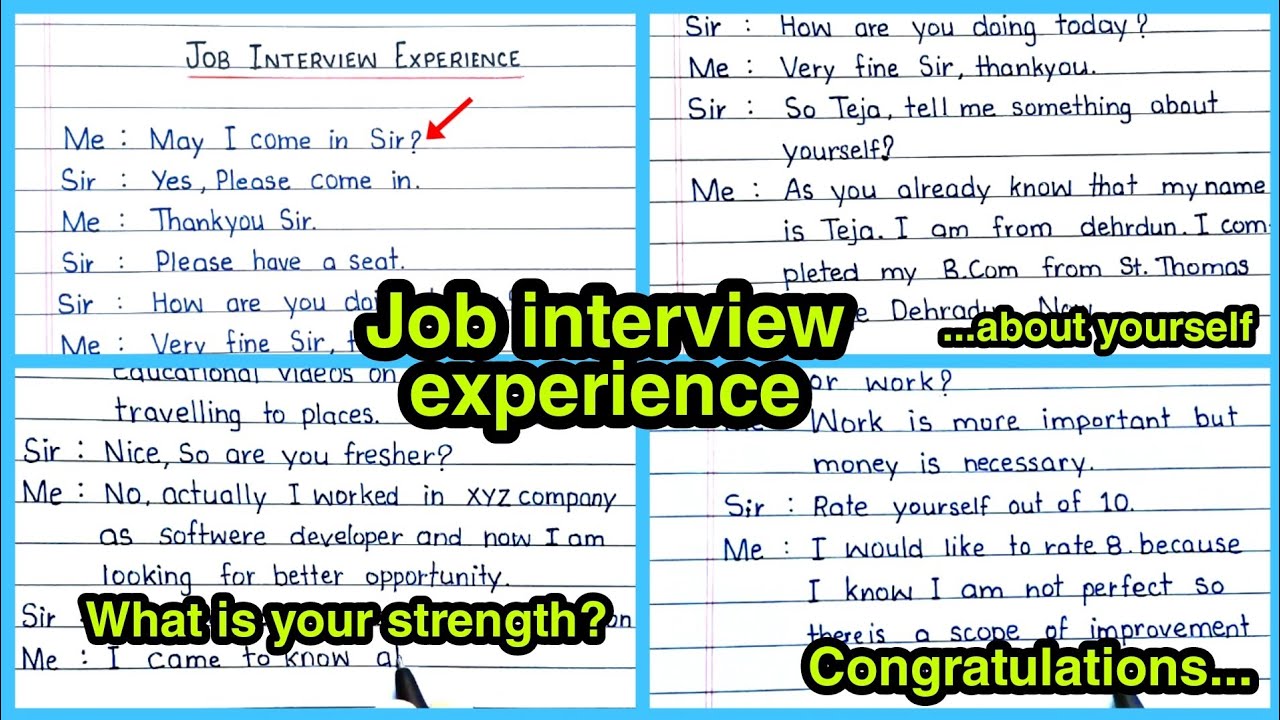 JOB INTERVIEW EXPERIENCE
Me : May I come in Sir?
Sir : Yes, Please come in.
Me : Thankyou Sir.
Sir : Please have a seat.
Sir : How are you doi
Me : Very fine Sir, t
Sir : How are you doing today?
Me : Very fine Sir, thankyou.
Sir : So Teja, tell me something about
yourself?
Me : As you already know that my name
is Teja. I am from dehrdun. I com-
pleted my B.Com from St. Thomas
Dehradu Now
...about yourself
Job interview
experience
Educational videos on
travelling to places.
Sir : Nice, So are you fresher?
Me : No, actually I worked in XYZ company
as softwere developer and now I am
looking for better opportunity.
Sir on
What is your strength?
Me : I came to know a
or work?
Work is more important but
money is necessary.
Sir : Rate yourself out of 10.
Me : I would like to rate 8. because
I know I am not perfect so
there is a scope of improvement
Congratulations...